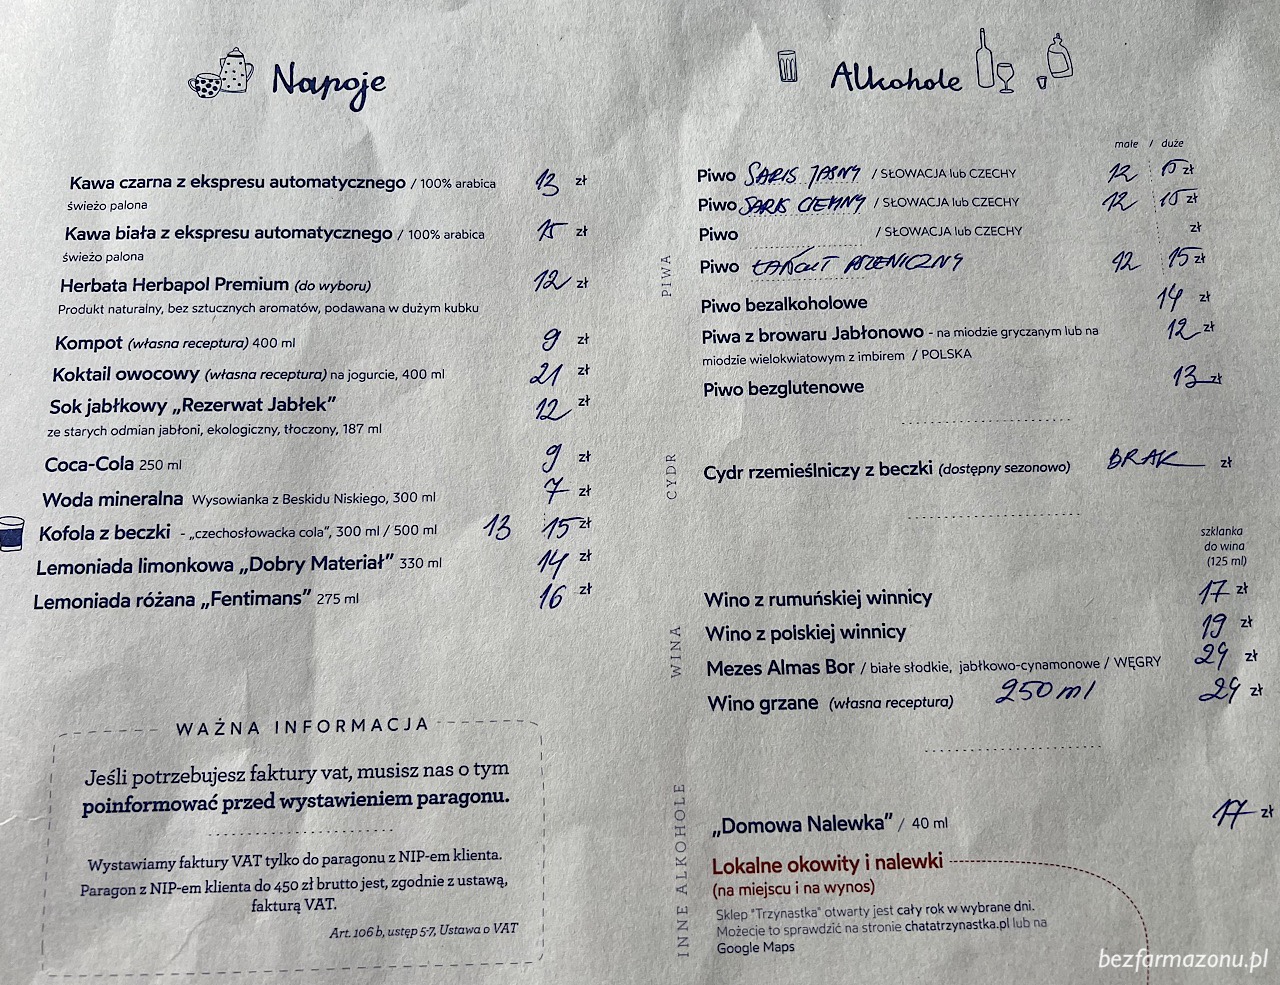 Napoje
Kawa czarna z ekspresu automatycznego / 100% arabica 13 zł
świeżo palona
Kawa biała z ekspresu automatycznego / 100% arabica 15 zł
świeżo palona
Herbata Herbapol Premium (do wyboru) 12 zł
Produkt naturalny, bez sztucznych aromatów, podawana w dużym kubku
Kompot (własna receptura) 400 ml 9 zł
Koktail owocowy (własna receptura) na jogurcie, 400 ml 21 zł
Sok jabłkowy „Rezerwat Jabłek” 12 zł
ze starych odmian jabłoni, ekologiczny, tłoczony, 187 ml
Coca-Cola 250 ml 9 zł
Woda mineralna Wysowianka z Beskidu Niskiego, 300 ml 7 zł
Kofola z beczki - „czechosłowacka cola”, 300 ml / 500 ml 13 15 zł
Lemoniada limonkowa „Dobry Materiał” 330 ml 14 zł
Lemoniada różana „Fentimans” 275 ml 16 zł
WAŻNA INFORMACJA
Jeśli potrzebujesz faktury vat, musisz nas o tym
poinformować przed wystawieniem paragonu.
Wystawiamy faktury VAT tylko do paragonu z NIP-em klienta.
Paragon z NIP-em klienta do 450 zł brutto jest, zgodnie z ustawą,
fakturą VAT.
Art. 106 b, ustęp 5-7, Ustawa o VAT
Alkohole
małe / duże
PIWA
Piwo SARIS JASNY / SŁOWACJA lub CZECHY 12 15 zł
Piwo SARIS CIEMNY / SŁOWACJA lub CZECHY 12 15 zł
Piwo / SŁOWACJA lub CZECHY zł
Piwo ŁAŃCUT PSZENICZNY 12 15 zł
Piwo bezalkoholowe 14 zł
Piwa z browaru Jabłonowo - na miodzie gryczanym lub na 12 zł
miodzie wielokwiatowym z imbirem / POLSKA
Piwo bezglutenowe 13 zł
CYDR
Cydr rzemieślniczy z beczki (dostępny sezonowo) BRAK zł
szklanka
do wina
(125 ml)
WINA
Wino z rumuńskiej winnicy 17 zł
Wino z polskiej winnicy 19 zł
Mezes Almas Bor / białe słodkie, jabłkowo-cynamonowe / WĘGRY 29 zł
Wino grzane (własna receptura) 250 ml 29 zł
INNE ALKOHOLE
„Domowa Nalewka” / 40 ml 17 zł
Lokalne okowity i nalewki
(na miejscu i na wynos)
Sklep "Trzynastka" otwarty jest cały rok w wybrane dni.
Możecie to sprawdzić na stronie chatatrzynastka.pl lub na
Google Maps
bezfarmazonu.pl